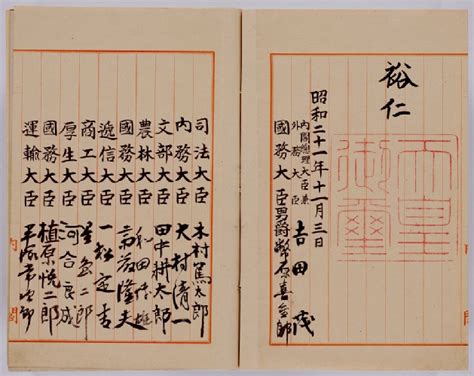 裕仁
天皇
御璽
昭和二十一年十一月三日
内閣總理大臣兼
外務大臣 吉田茂
國務大臣男爵幣原喜重郎
司法大臣 木村篤太郎
内務大臣 大村清一
文部大臣 田中耕太郎
農林大臣 和田博雄
國務大臣 斎藤隆夫
逓信大臣 一松定吉
商工大臣 星島二郎
厚生大臣 河合良成
國務大臣 植原悦二郎
運輸大臣 平塚常次郎
内閣